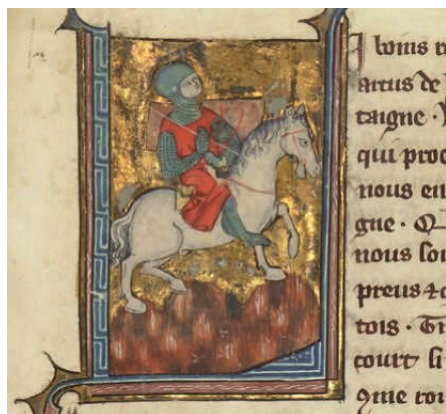 I boins r
artus de
taigne · l
qui proe
nous en
gne · Q
nous soi
preus ⁊ c
tois · Ti
court si
9me roi